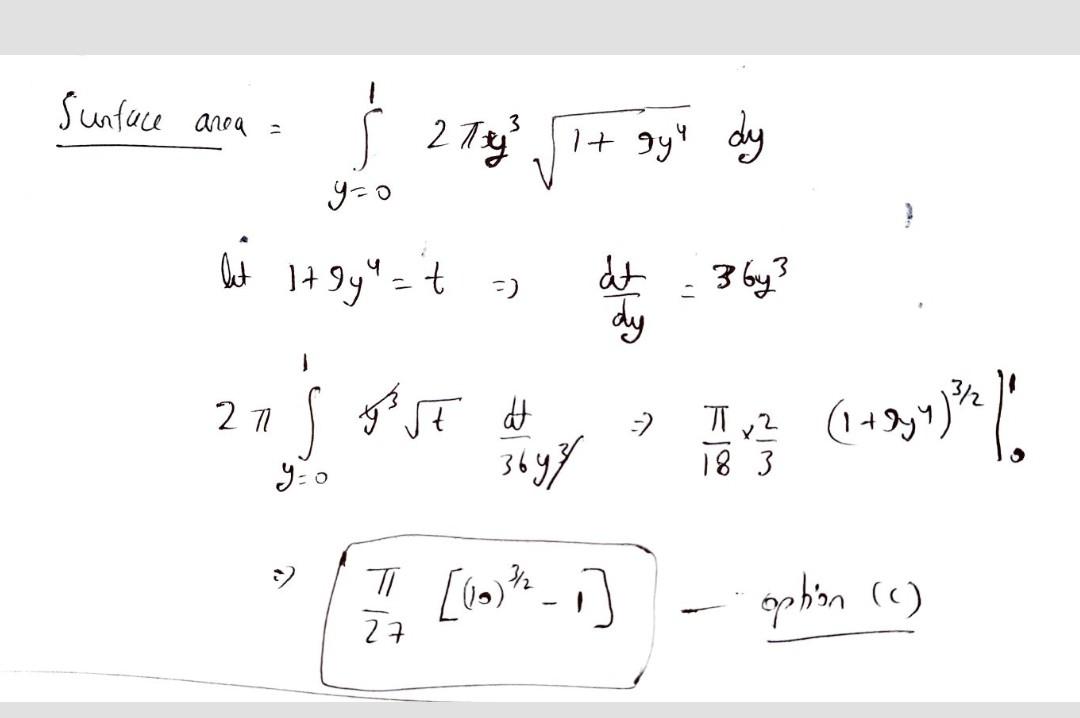 Surface area = ∫_{y=0}^{1} 2πy³ √(1+9y⁴) dy
let 1+9y⁴ = t => dt/dy = 36y³
2π ∫_{y=0}^{1} y³ √t dt/36y³ => π/18 × 2/3 (1+9y⁴)^{3/2} |₀¹
=> π/27 [(10)^{3/2} - 1] — option (c)